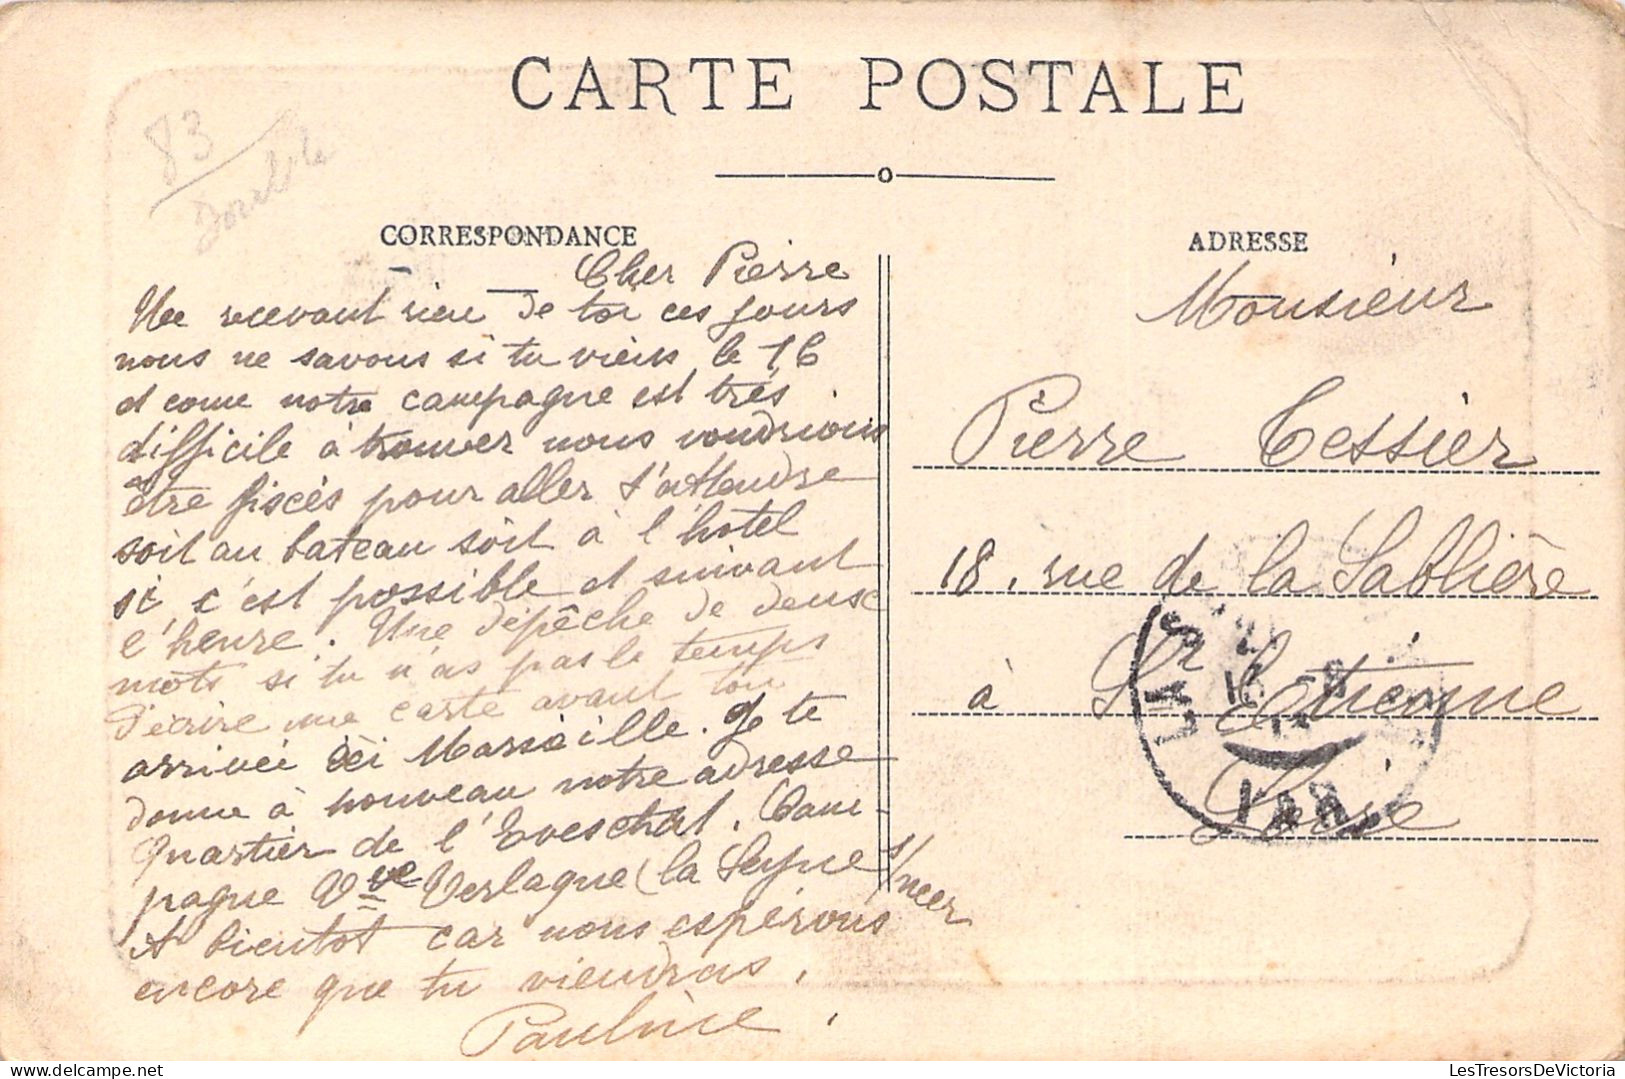 CARTE POSTALE
83
Double
CORRESPONDANCE
ADRESSE
Cher Pierre
Ne recevant rien de toi ces jours
nous ne savons si tu viens le 16
et come notre campagne est très
difficile à trouver nous voudrions
être fiscés pour aller t'attendre
soit au bateau soit à l'hotel
si c'est possible et suivant
l'heure. Une dépêche de deux
mots si tu n'as pas le temps
d'écrire une carte avant ton
arrivée ici Marseille. Je te
donne à nouveau notre adresse
Quartier de l'Evescat. Cam-
pagne Vve Verlaque (la Seyne s/mer
A bientot car nous espérons
encore que tu viendras.
Pauline.
Monsieur
Pierre Tessier
18, rue de la Sablière
à St Etienne
Loire
LA S
VAR
LesTresorsDeVictoria